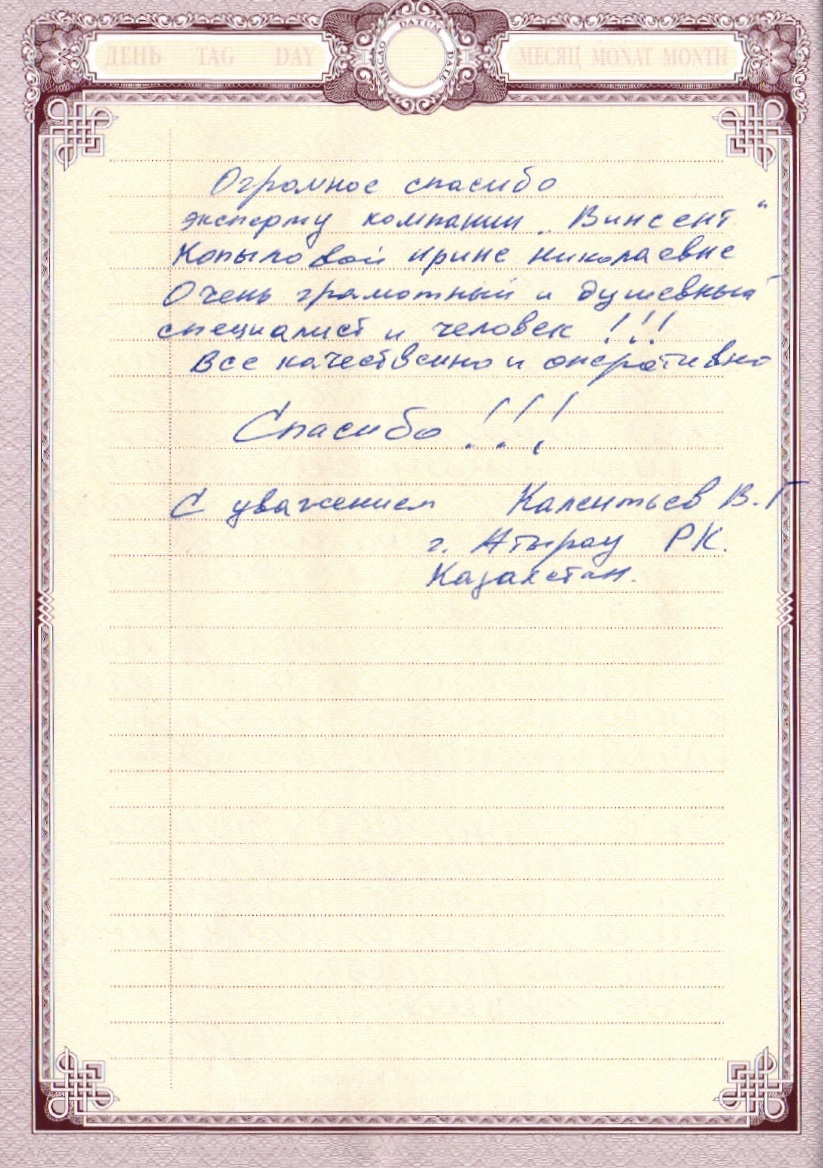 ДЕНЬ TAG DAY
DATUM
МЕСЯЦ MONAT MONTH
Огромное спасибо
эксперту компании „Винсент"
Копыловой Ирине Николаевне
Очень грамотный и душевный
специалист и человек !!!
Все качественно и оперативно
Спасибо !!!
С уважением Калентьев В.Г
г. Атырау РК.
Казахстан.